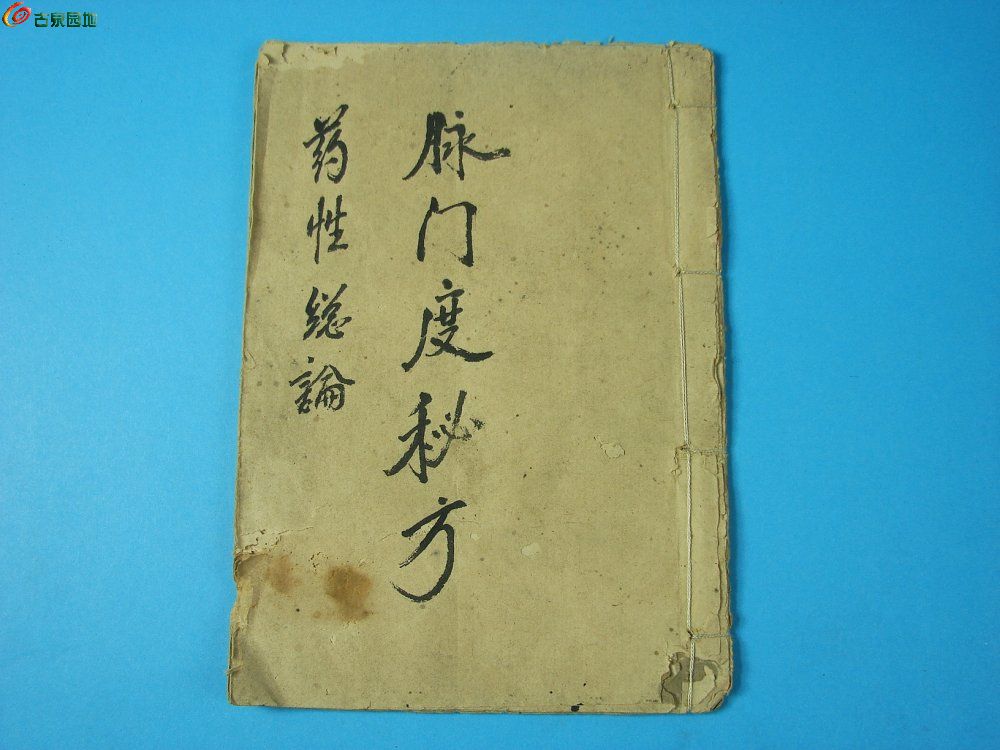 古泉园地
脉门度秘方
药性総論